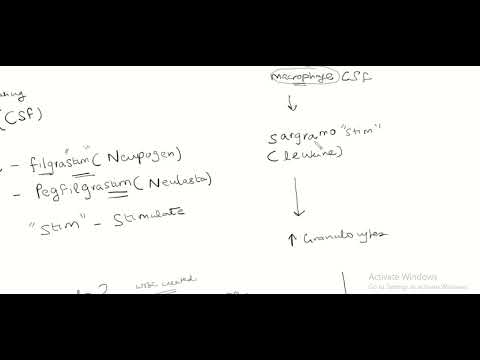 macrophyes CSF
(CSF)
- filgrastim (Neupogen)
- Pegfilgrastim (Neulasta)
"Stim" - Stimulate
Sargramo "stim"
(leukine)
↑ Granulocytes
WBC created
Activate Windows
Go to Settings to activate Windows.